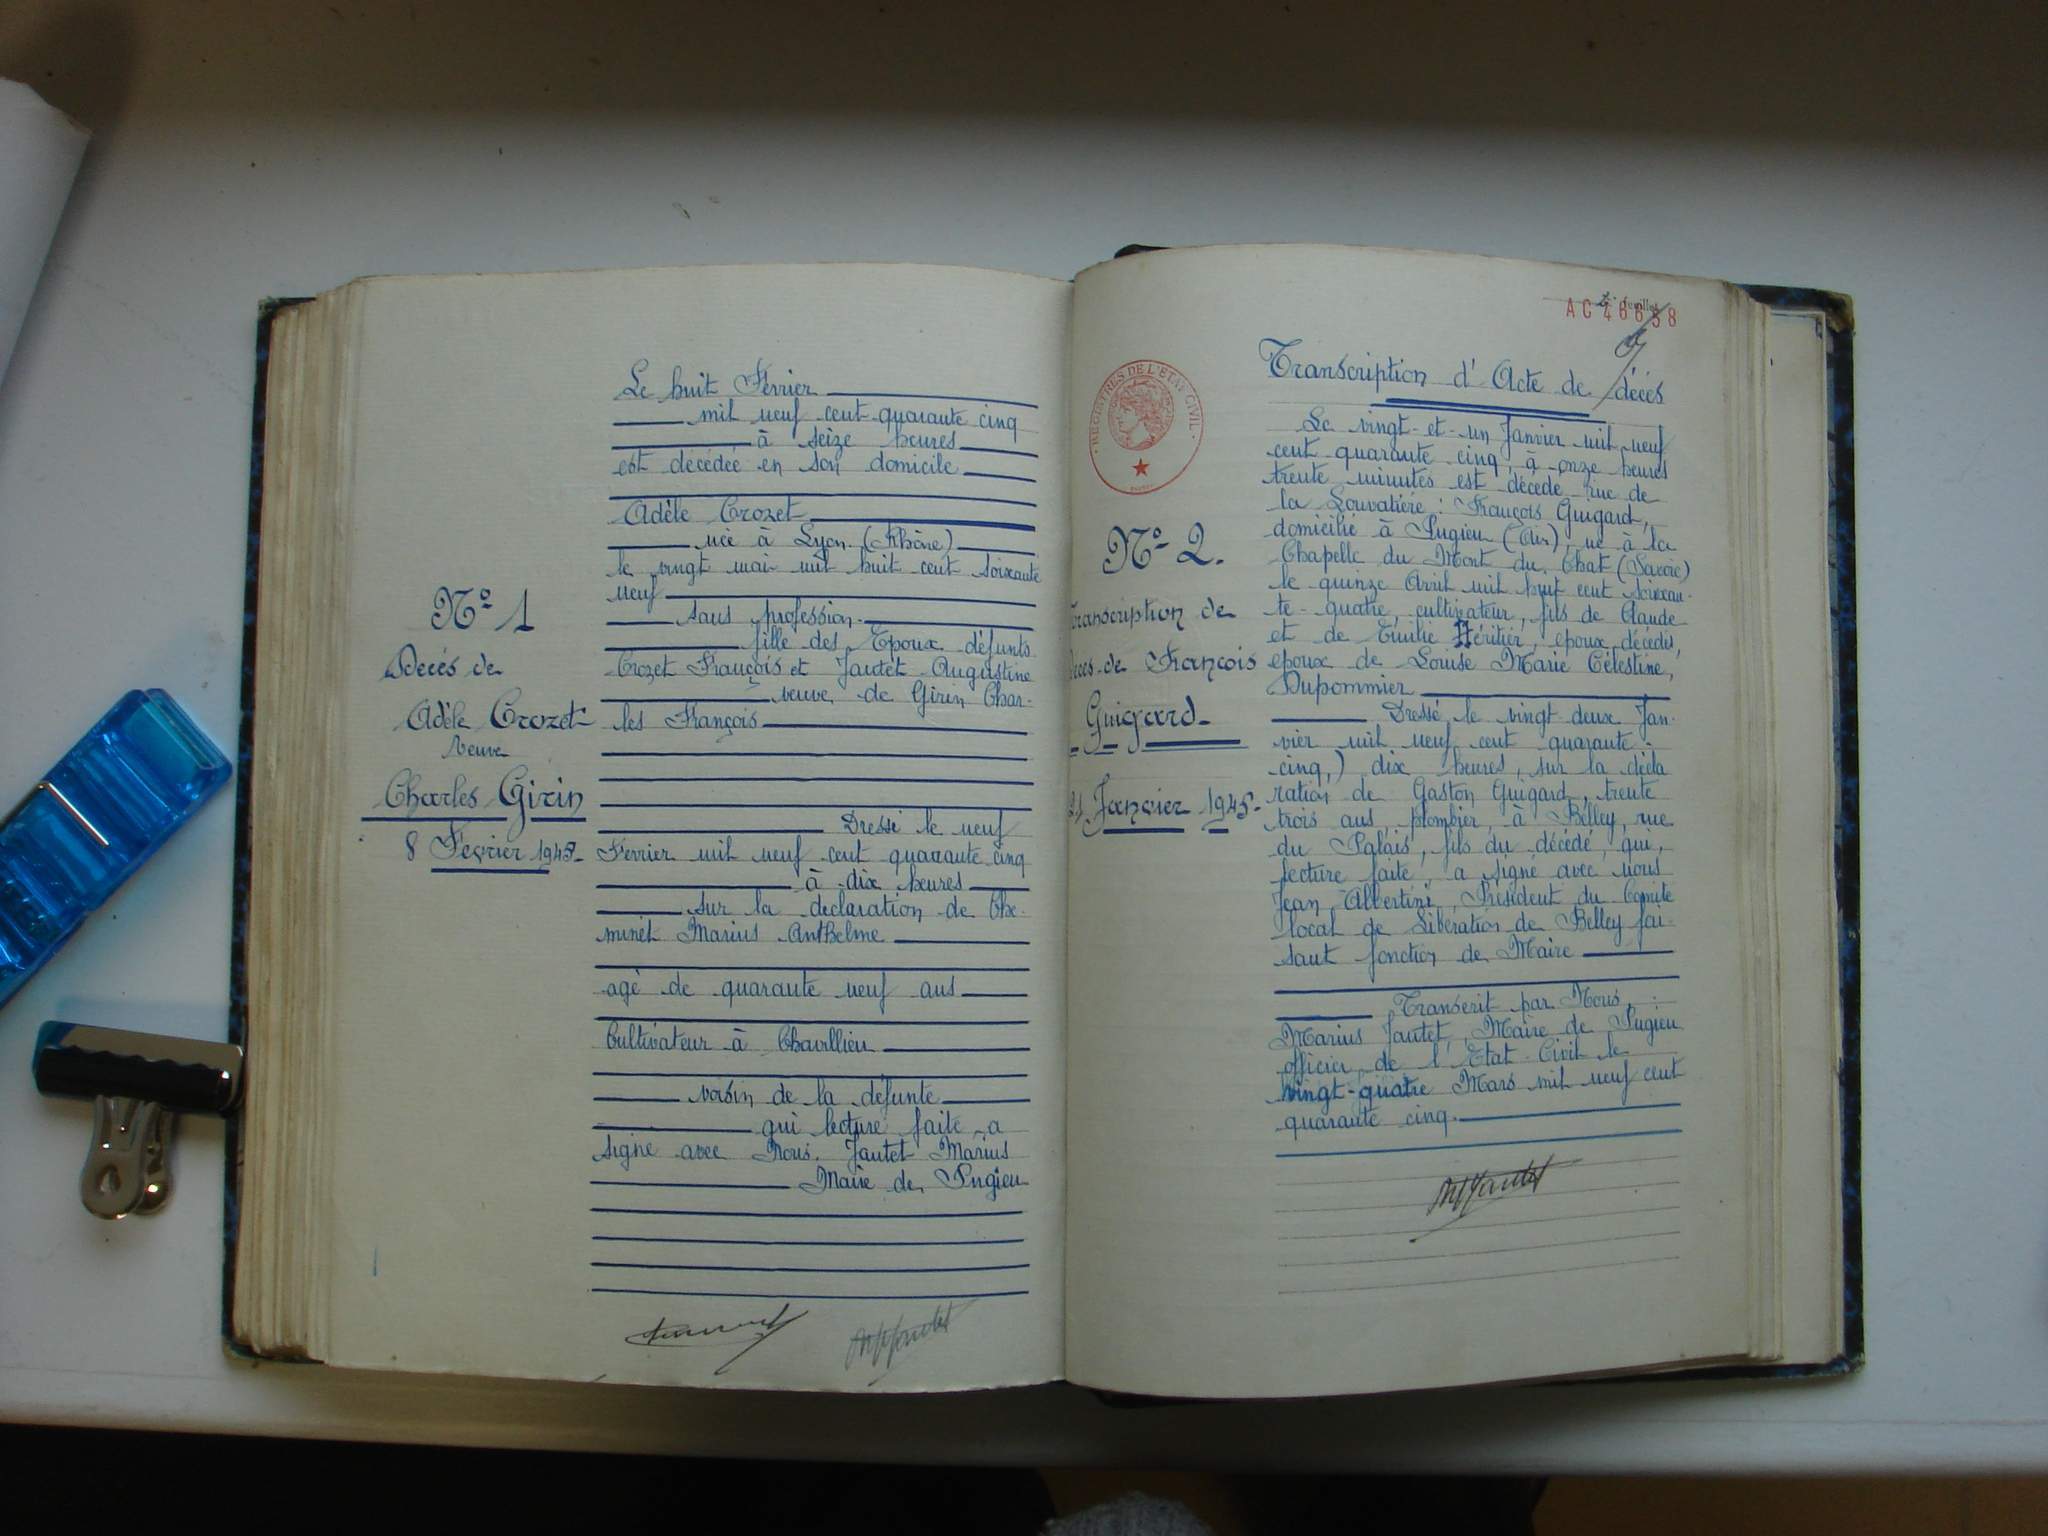 N° 1
Décés de
Adèle Crozet
Veuve
Charles Girin
8 Février 1945-
Le huit Février
mil neuf cent quarante cinq
à seize heures
est décédée en son domicile
Adèle Crozet
née à Lyon (Rhône)
le vingt mai mil huit cent soixante
neuf
sans profession.
fille des Epoux défunts
Crozet François et Jautet Augustine
veuve de Girin Char-
les François
Dressé le neuf
Fevrier mil neuf cent quarante cinq
à dix heures
sur la déclaration de Che-
minet Marius Anthelme
agé de quarante neuf ans
Cultivateur à Chavillieu
voisin de la défunte
qui lecture faite a
signé avec Nous. Jautet Marius
Maire de Pugieu
REGISTRES DE L'ETAT CIVIL
N° 2.
Transcription de
Décès de François
Guigard
21 Janvier 1945-
feuillet
AC 46658
Transcription d'Acte de décés
Le vingt-et-un Janvier mil neuf
cent quarante cinq, à onze heures
trente minutes est décédé rue de
la Louvatière : François Guigard,
domicilié à Pugieu (Ain), né à la
Chapelle du Mont du Chat (Savoie)
le quinze Avril mil huit cent soixan-
te-quatre, cultivateur, fils de Claude
et de Emilie Héritier, époux décédés,
epoux de Louise Marie Célestine,
Dupommier
Dressé le vingt-deux Jan-
vier mil neuf cent quarante-
cinq,) dix heures, sur la décla
ration de Gaston Guigard, trente
trois ans plombier, à Belley, rue
du Palais, fils du décédé, qui,
lecture faite, a signé avec nous
Jean Albertini, Président du Comité
local de Libération de Belley fai-
sant fonction de Maire
Transcrit par Nous,
Marius Jautet, Maire de Pugieu
officier de l'Etat-Civil le
vingt-quatre Mars mil neuf cent
quarante cinq.